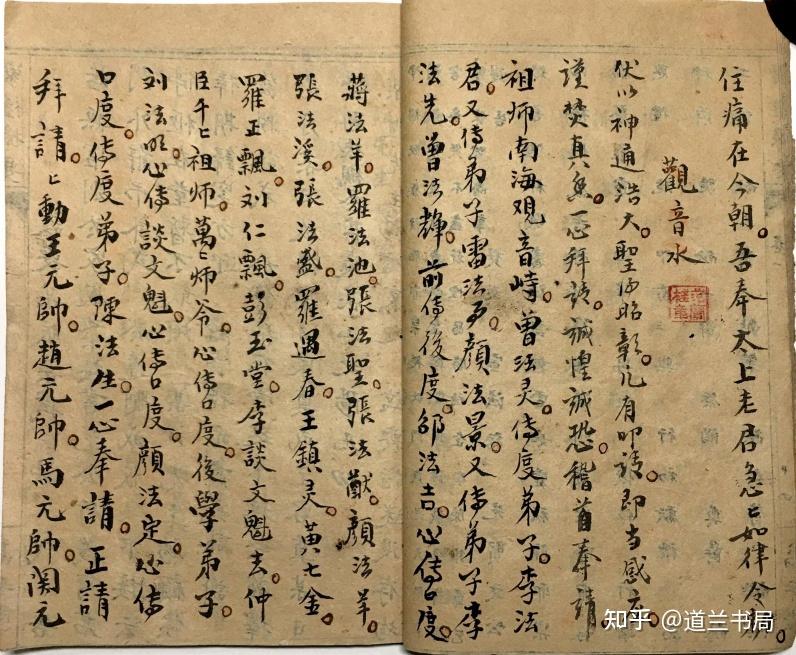 住痛在今朝吾奉太上老君急〻如律令
觀音水
伏以神通浩大聖德昭彰凡有叩請即当感应
謹焚真香一心拜請誠惶誠恐稽首奉請
祖师南海观音崎曾法灵傳度弟子李法
君又傳弟子雷法 顔法景又傳弟子李
法先曾法輝前傳後度邵法吉心傳口度
蔣法羊羅法池張法聖張法猷顔法羊
張法溪張法盛羅遇春王鎮灵黄七金
羅正飄刘仁飄彭玉堂李談文魁去仲
臣千〻祖师萬〻师爷心傳口度後學弟子
刘法明心傳談文魁心傳口度顔法定心傳
口度傳度弟子陳法生一心奉請正請
拜請〻動王元帥趙元帥馬元帥関元
知乎 @道兰书局